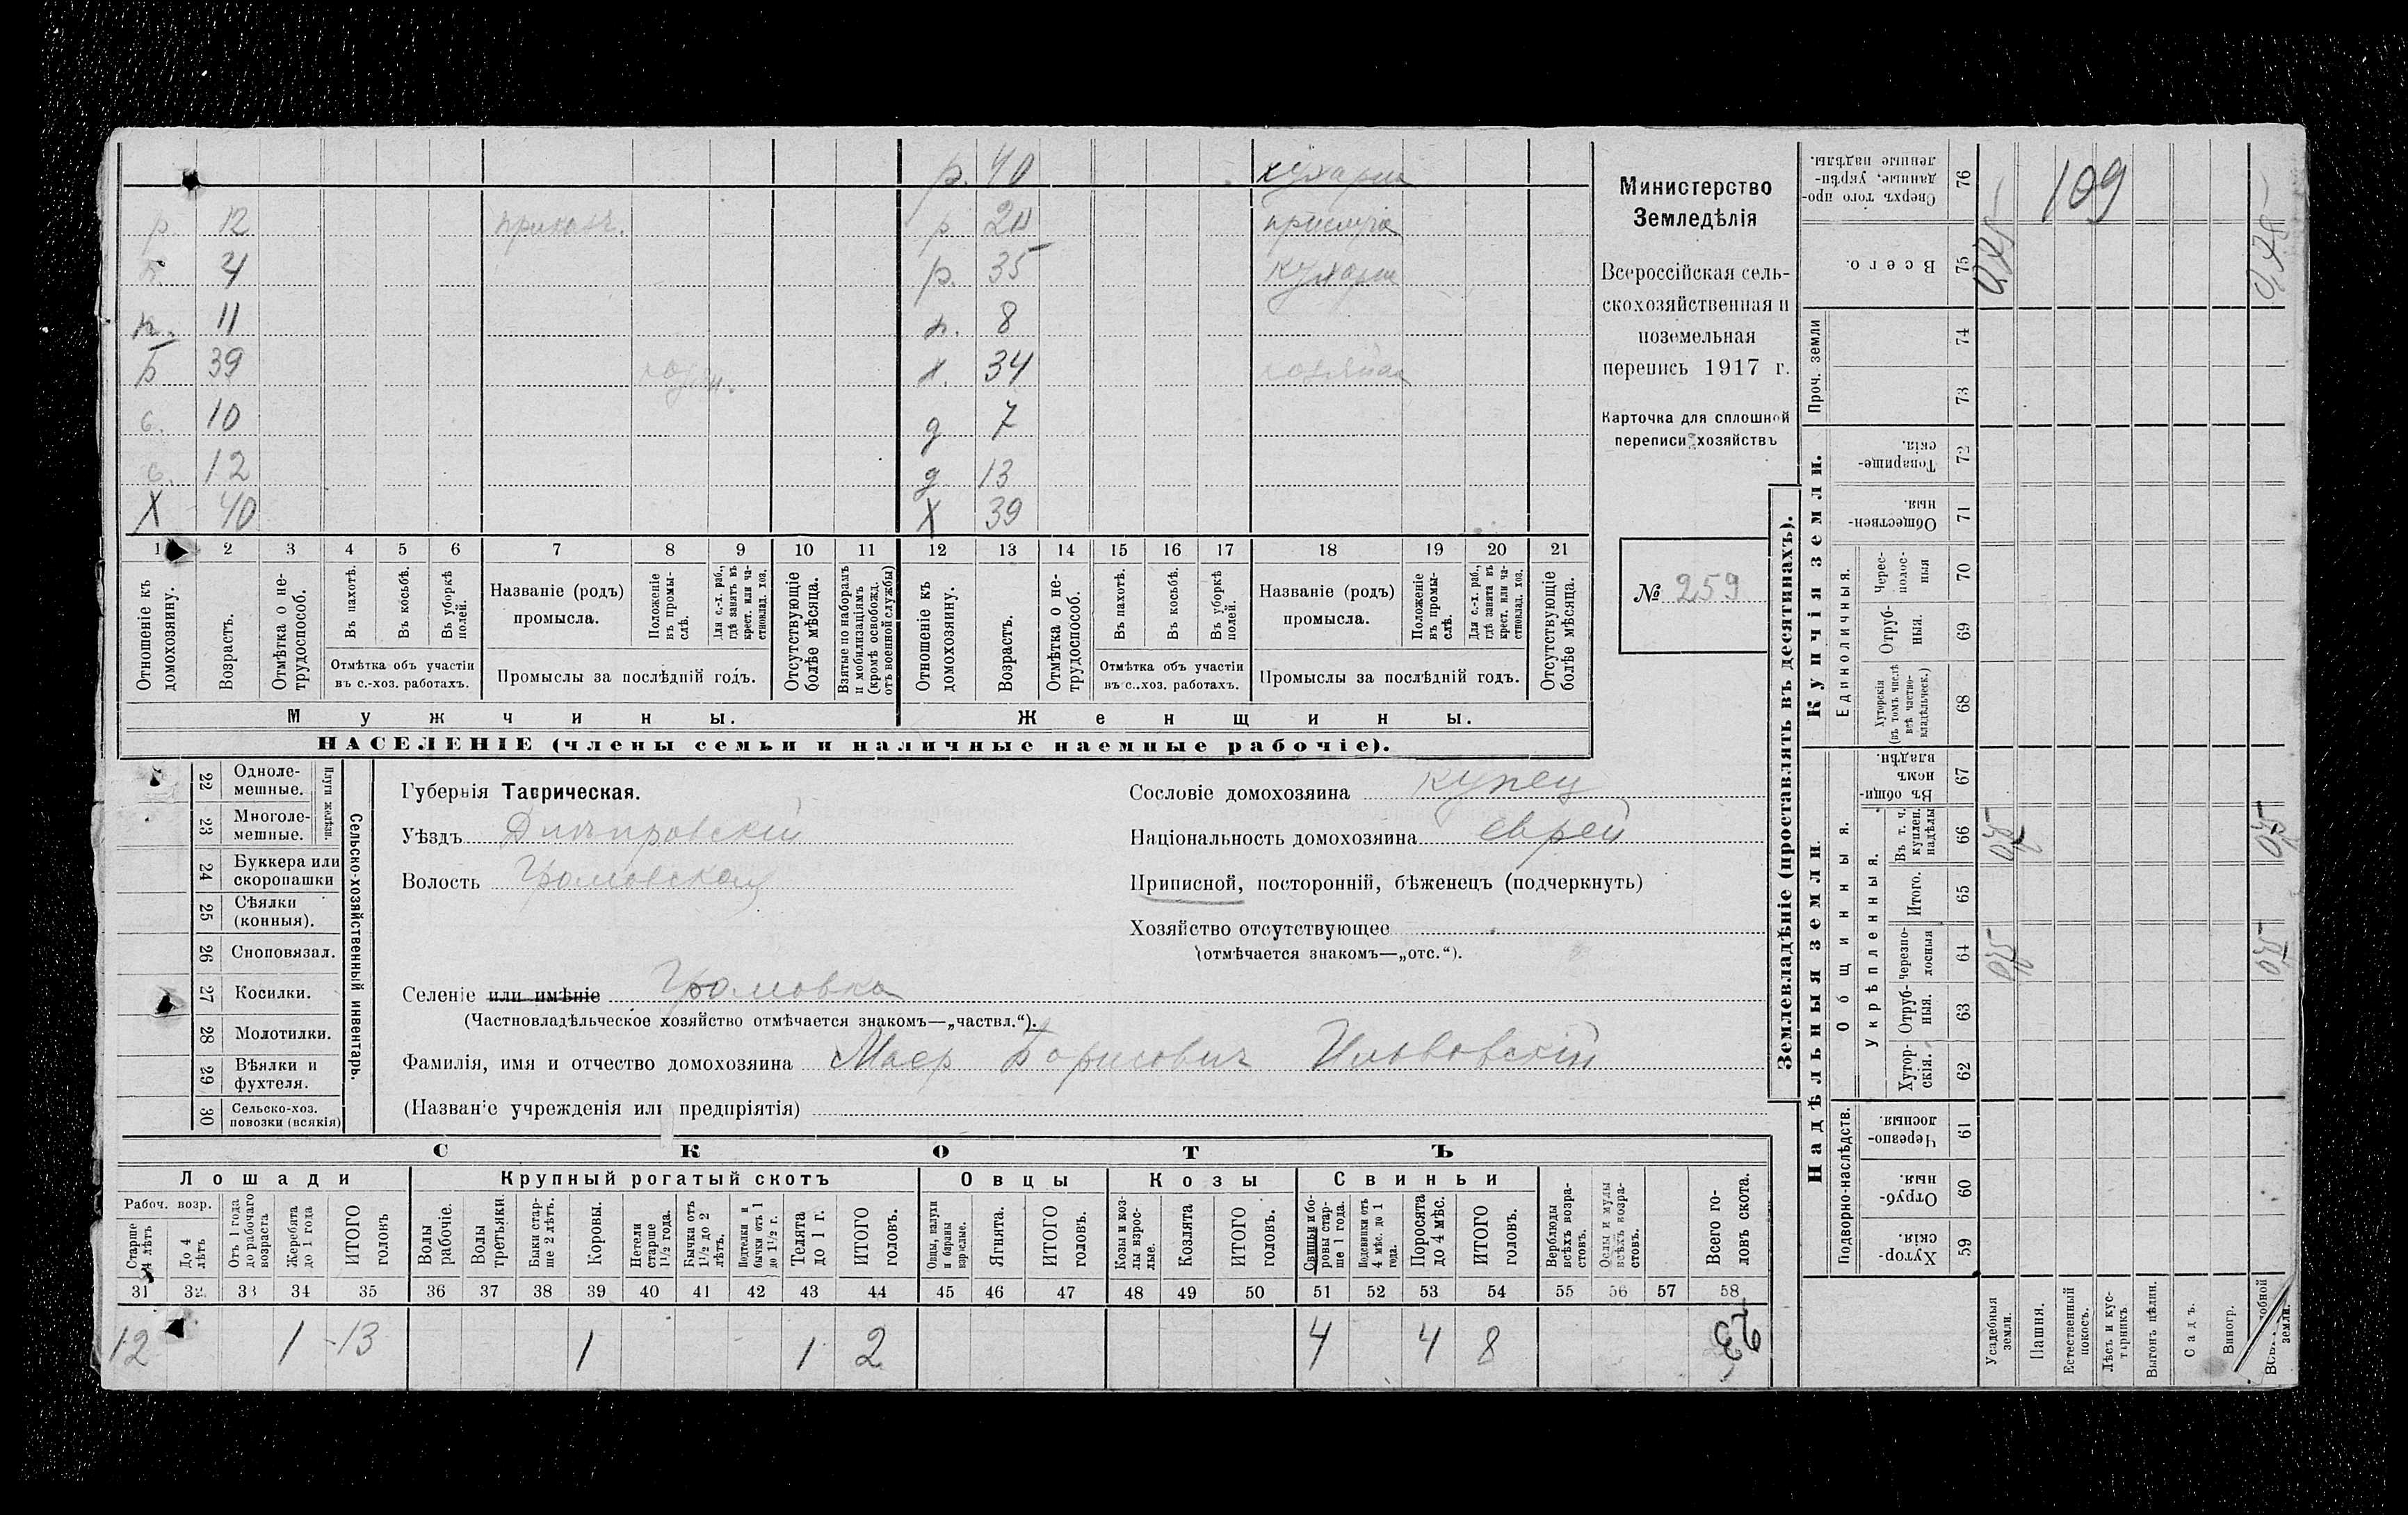 р. 40 кухарка
р 12 приказч. р 20 прислуга
4 р. 35 кухарка
п. 11 п. 8
39 х. 34 хозяйка
с. 10 д 7
с. 12 д 13
Х 40 Х 39
1 2 3 4 5 6 7 8 9 10 11 12 13 14 15 16 17 18 19 20 21
Отношеніе къ домохозяину.
Возрастъ.
Отмѣтка о нетрудоспособ.
Въ пахотѣ.
Въ косьбѣ.
Въ уборкѣ полей.
Отмѣтка объ участіи въ с.-хоз. работахъ.
Названіе (родъ) промысла.
Положеніе въ промыслѣ.
Для с.-х. раб., гдѣ занятъ въ крест. или частновлад. хоз.
Промыслы за послѣдній годъ.
Отсутствующіе болѣе мѣсяца.
Взятые по наборамъ и мобилизаціямъ (кромѣ освобожд. отъ военной службы)
Отношеніе къ домохозяину.
Возрастъ.
Отмѣтка о нетрудоспособ.
Въ пахотѣ.
Въ косьбѣ.
Въ уборкѣ полей.
Отмѣтка объ участіи въ с.-хоз. работахъ.
Названіе (родъ) промысла.
Положеніе въ промыслѣ.
Для с.-х. раб., гдѣ занята въ крест. или частновлад. хоз.
Промыслы за послѣдній годъ.
Отсутствующіе болѣе мѣсяца.
Мужчины. Женщины.
НАСЕЛЕНІЕ (члены семьи и наличные наемные рабочіе).
Министерство
Земледѣлія
Всероссійская сель-
скохозяйственная и
поземельная
перепись 1917 г.
Карточка для сплошной
переписи хозяйствъ
№ 259
Сельско-хозяйственный инвентарь.
Плуги желѣзн.
22 Однолемешные.
23 Многолемешные.
24 Буккера или скоропашки
25 Сѣялки (конныя).
26 Сноповязал.
27 Косилки.
28 Молотилки.
29 Вѣялки и фухтеля.
30 Сельско-хоз. повозки (всякія)
Губернія Таврическая.
Уѣздъ Днѣпровскій
Волость Громовская
Селеніе или имѣніе Громовка
(Частновладѣльческое хозяйство отмѣчается знакомъ—„частвл.“).
Фамилія, имя и отчество домохозяина Маер Борисович
(Названіе учрежденія или предпріятія)
Сословіе домохозяина купец
Національность домохозяина еврей
Приписной, посторонній, бѣженецъ (подчеркнуть)
Хозяйство отсутствующее
(отмѣчается знакомъ—„отс.“).
СКОТЪ
Лошади Крупный рогатый скотъ Овцы Козы Свиньи
Рабоч. возр.
Старше 4 лѣтъ
До 4 лѣтъ
Отъ 1 года до рабочаго возраста
Жеребята до 1 года
ИТОГО головъ
Волы рабочіе.
Волы третьяки.
Быки старше 2 лѣтъ.
Коровы.
Нетели старше 1 1/2 года.
Бычки отъ 1 1/2 до 2 лѣтъ.
Подтелки и бычки отъ 1 до 1 1/2 г.
Телята до 1 г.
ИТОГО головъ.
Овцы, валухи и бараны взрослые.
Ягнята.
ИТОГО головъ.
Козы и козлы взрослые.
Козлята
ИТОГО головъ.
Свиньи и боровы старше 1 года.
Подсвинки отъ 4 мѣс. до 1 года.
Поросята до 4 мѣс.
ИТОГО головъ.
Верблюды всѣхъ возрастовъ.
Ослы и мулы всѣхъ возрастовъ.
Всего головъ скота.
31 32 33 34 35 36 37 38 39 40 41 42 43 44 45 46 47 48 49 50 51 52 53 54 55 56 57 58
12 1 13 1 1 2 4 4 8 23
Землевладѣніе (проставлять въ десятинахъ).
Надѣльныя земли
Купчія земли.
Проч. земли
Подворно-наслѣдств.
Общинныя.
Укрѣпленныя.
Единоличныя.
Сверхъ того проданные, укрѣпленные надѣлы. 76
Всего. 75
74
73
Товарищескія. 72
Общественныя. 71
Чересполосныя 70
Отрубныя. 69
Хуторскія (въ томъ числѣ всѣ частновладѣльческ.) 68
Въ общинномъ владѣн. 67
Въ т. ч. куплен. надѣлы 66
Итого. 65
Черезполосныя 64
Отрубныя. 63
Хуторскія. 62
Черезполосныя 61
Отрубныя. 60
Хуторскія. 59
109
Усадебныя земли.
Пашня.
Естественный покосъ.
Лѣсъ и кустарникъ
Выгонъ цѣлин.
Садъ.
Виногр.
земли.